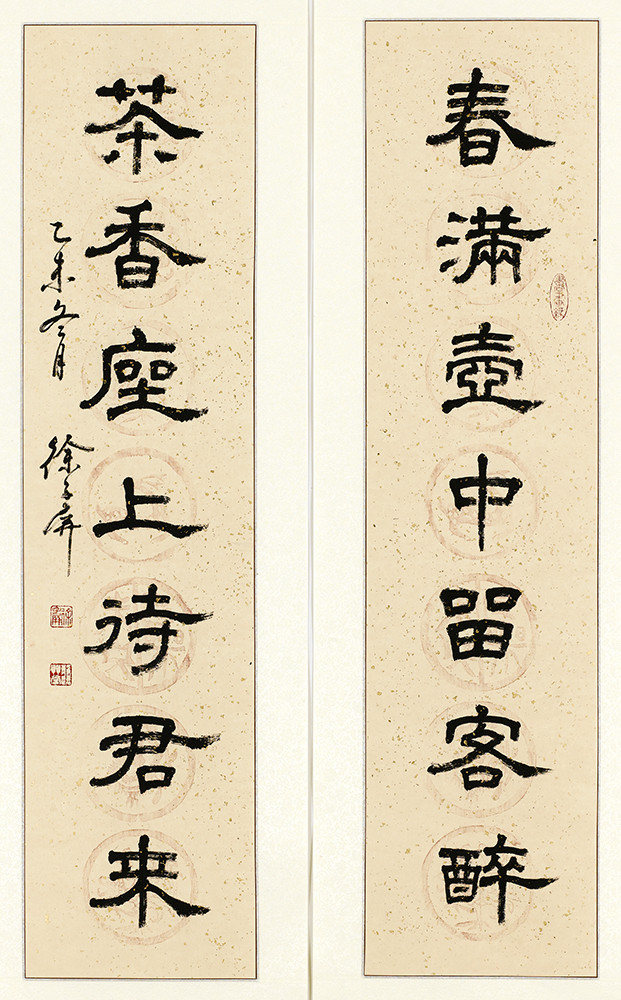 春满壶中留客醉
茶香座上待君来
乙未冬月
徐子屏